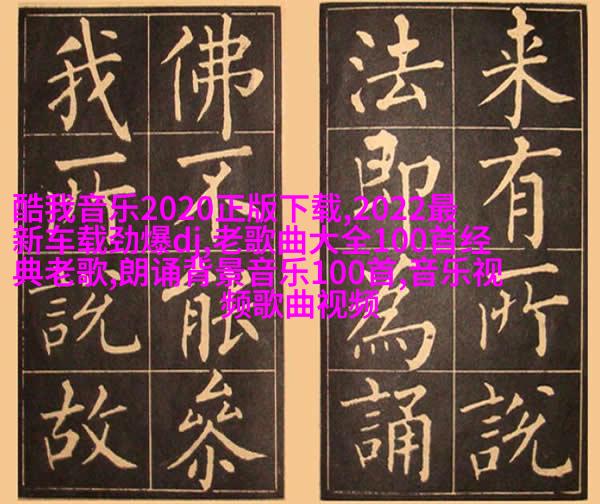 来有所說
法即為誦
佛不能叅
我所說故
酷我音乐2020正版下载,2022最
新车载劲爆dj,老歌曲大全100首经
典老歌,朗诵背景音乐100首,音乐视
频歌曲视频